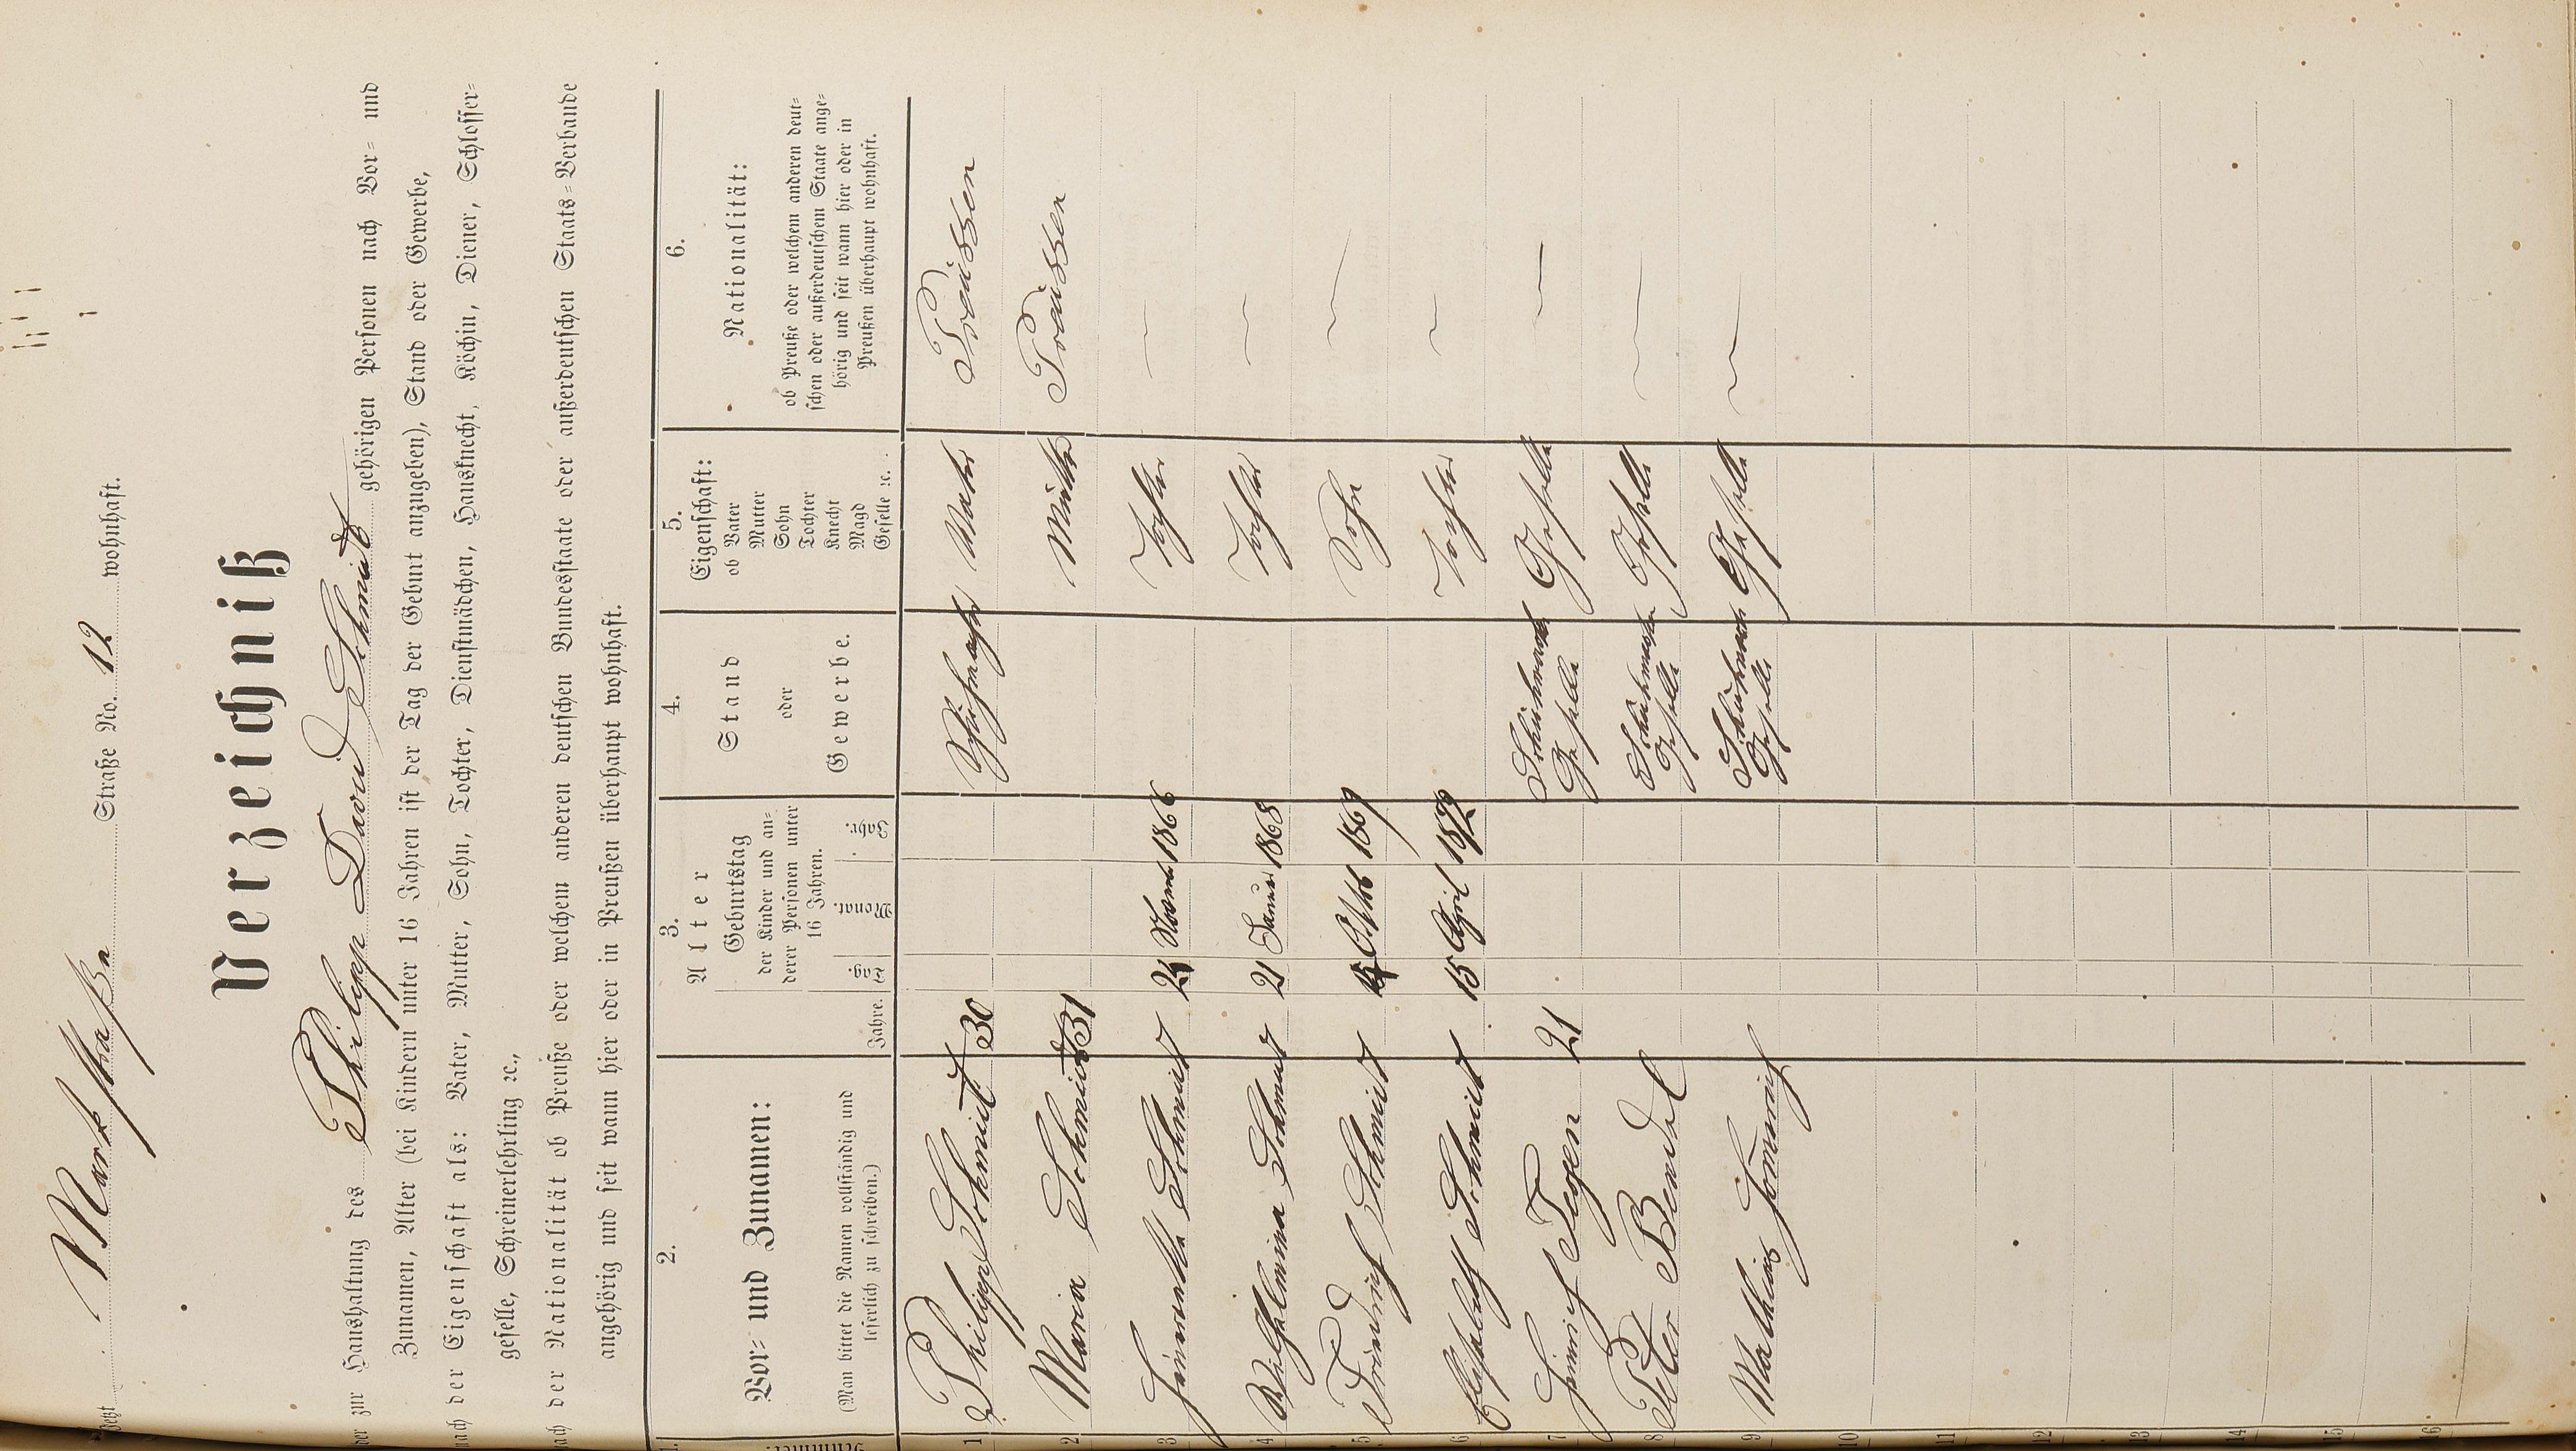 Jetzt Marktstraße Straße No. 12 wohnhaft.
Verzeichniß
der zur Haushaltung des Philipp David Schmidt gehörigen Personen nach Vor- und
Zunamen, Alter (bei Kindern unter 16 Jahren ist der Tag der Geburt anzugeben), Stand oder Gewerbe,
nach der Eigenschaft als: Vater, Mutter, Sohn, Tochter, Dienstmädchen, Hausknecht, Köchin, Diener, Schlosser-
geselle, Schreinerlehrling ꝛc.,
nach der Nationalität ob Preuße oder welchem anderen deutschen Bundesstaate oder außerdeutschen Staats-Verbande
angehörig und seit wann hier oder in Preußen überhaupt wohnhaft.
1. 2. 3. 4. 5. 6.
Nummer.
Vor- und Zunamen:
(Man bittet die Namen vollständig und
leserlich zu schreiben.)
Alter
Jahre.
Geburtstag
der Kinder und an-
derer Personen unter
16 Jahren.
Tag. Monat. Jahr.
Stand
oder
Gewerbe.
Eigenschaft:
ob Vater
Mutter
Sohn
Tochter
Knecht
Magd
Geselle ꝛc.
Nationalität:
ob Preuße oder welchem anderen deut-
schen oder außerdeutschem Staate ange-
hörig und seit wann hier oder in
Preußen überhaupt wohnhaft.
1 Philipp Schmidt 30 Schuhmacher Vater Preussen
2 Maria Schmidt 31 Mutter Preussen
3 Schmidt November 1866 Tochter
4 Wilhelmina Schmidt 21 Januar 1868 Tochter
5 Friedrich Schmidt Oktob 1869 Sohn
6 Elisabeth Schmidt 15 April 1872 Tochter
7 Heinrich Tegen 21 Schuhmacher Geselle Geselle
8 Peter Bendel Schuhmacher Geselle Geselle
9 Mathias Schuhmacher Geselle Geselle
10
11
12
13
14
15
16